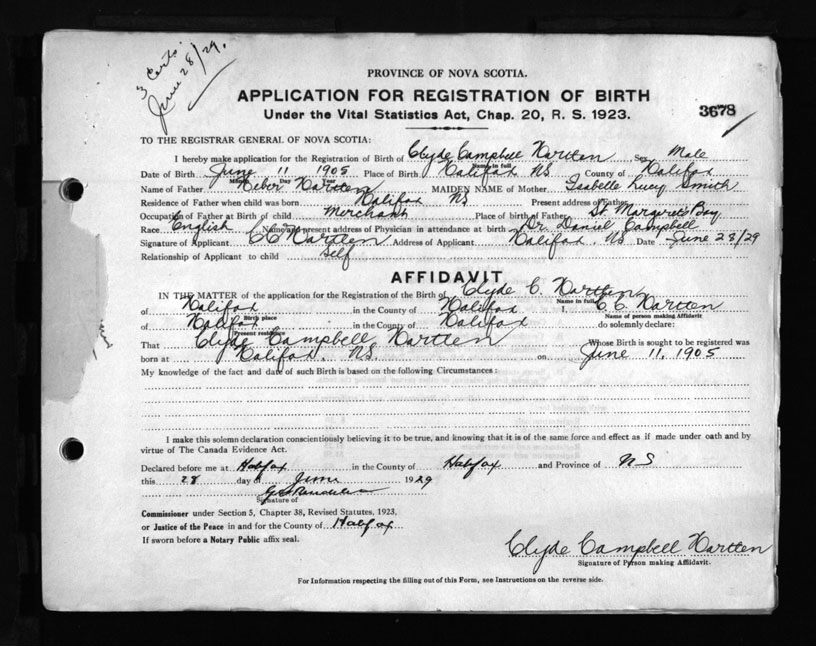 3 Certs.
June 28/29.
PROVINCE OF NOVA SCOTIA.
APPLICATION FOR REGISTRATION OF BIRTH
3678
Under the Vital Statistics Act, Chap. 20, R. S. 1923.
TO THE REGISTRAR GENERAL OF NOVA SCOTIA:
I hereby make application for the Registration of Birth of Clyde Campbell Hartlen Sex Male
Name in full
Date of Birth June 11 1905 Place of Birth Halifax NS County of Halifax
Month Day Year
Name of Father Heber Hartlen MAIDEN NAME of Mother Isabelle Lucy Smith
Residence of Father when child was born Halifax NS Present address of Father
Occupation of Father at Birth of child Merchant Place of birth of Father St. Margarets Bay
Race English Name and present address of Physician in attendance at birth Dr. Daniel Campbell
Signature of Applicant CC Hartlen Address of Applicant Halifax. NS Date June 28/29
Relationship of Applicant to child Self
AFFIDAVIT
IN THE MATTER of the application for the Registration of the Birth of Clyde C. Hartlen
Name in full
of Halifax in the County of Halifax I, C C Hartlen
Birth place Name of person making Affidavit
of Halifax in the County of Halifax do solemnly declare:
Present residence
That Clyde Campbell Hartlen Whose Birth is sought to be registered was
born at Halifax. NS on June 11, 1905
My knowledge of the fact and date of such Birth is based on the following Circumstances:
I make this solemn declaration conscientiously believing it to be true, and knowing that it is of the same force and effect as if made under oath and by
virtue of The Canada Evidence Act.
Declared before me at Halifax in the County of Halifax and Province of NS
this 28 day of June 1929
Signature of
Commissioner under Section 5, Chapter 38, Revised Statutes, 1923,
or Justice of the Peace in and for the County of Halifax
If sworn before a Notary Public affix seal.
Clyde Campbell Hartlen
Signature of Person making Affidavit.
For Information respecting the filling out of this Form, see Instructions on the reverse side.